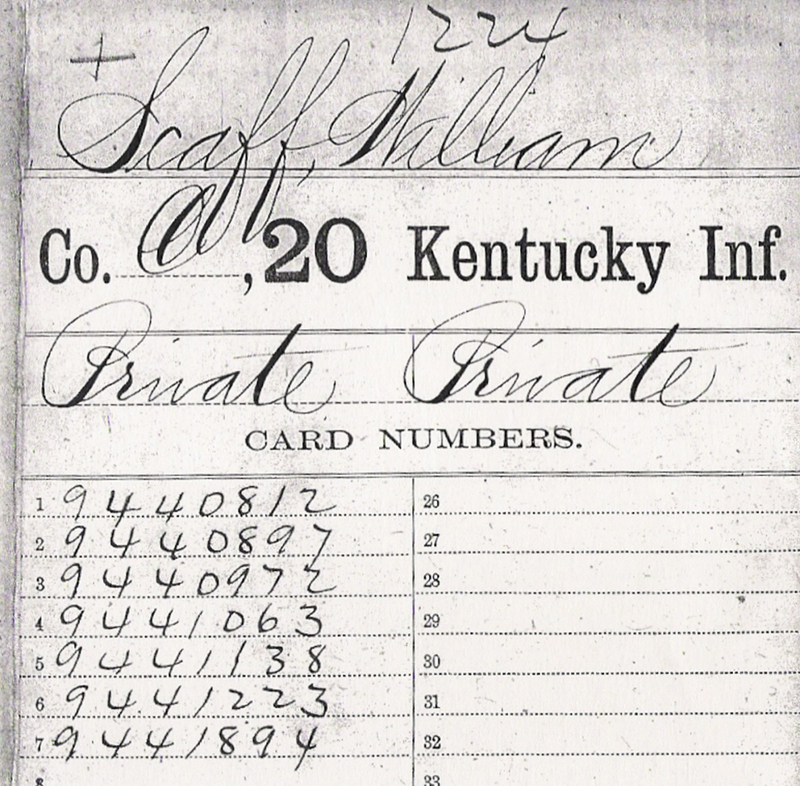 + 1224
Scaff, William
Co. C, 20 Kentucky Inf.
Private Private
CARD NUMBERS.
1 9440812 26
2 9440897 27
3 9440972 28
4 9441063 29
5 9441138 30
6 9441223 31
7 9441894 32
8 33